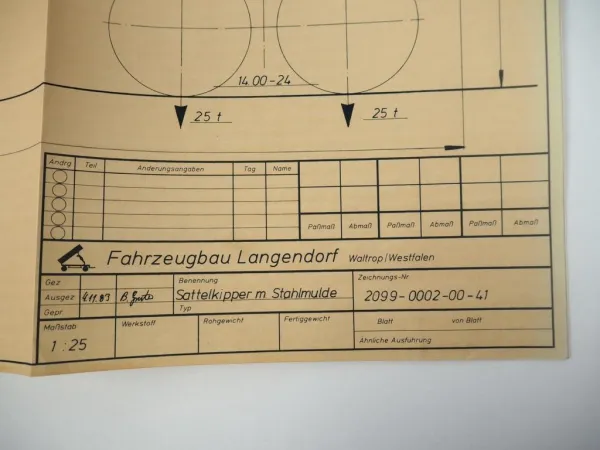 14.00-24
25 t
25 t
Andrg Teil Änderungsangaben Tag Name
Paßmaß Abmaß Paßmaß Abmaß Paßmaß Abmaß
Fahrzeugbau Langendorf Waltrop/Westfalen
Gez
Ausgez
Gepr.
Benennung
Sattelkipper m Stahlmulde
Typ
Zeichnungs-Nr
2099-0002-00-41
Maßstab
1:25
Werkstoff
Rohgewicht
Fertiggewicht
Blatt von Blatt
Ähnliche Ausführung